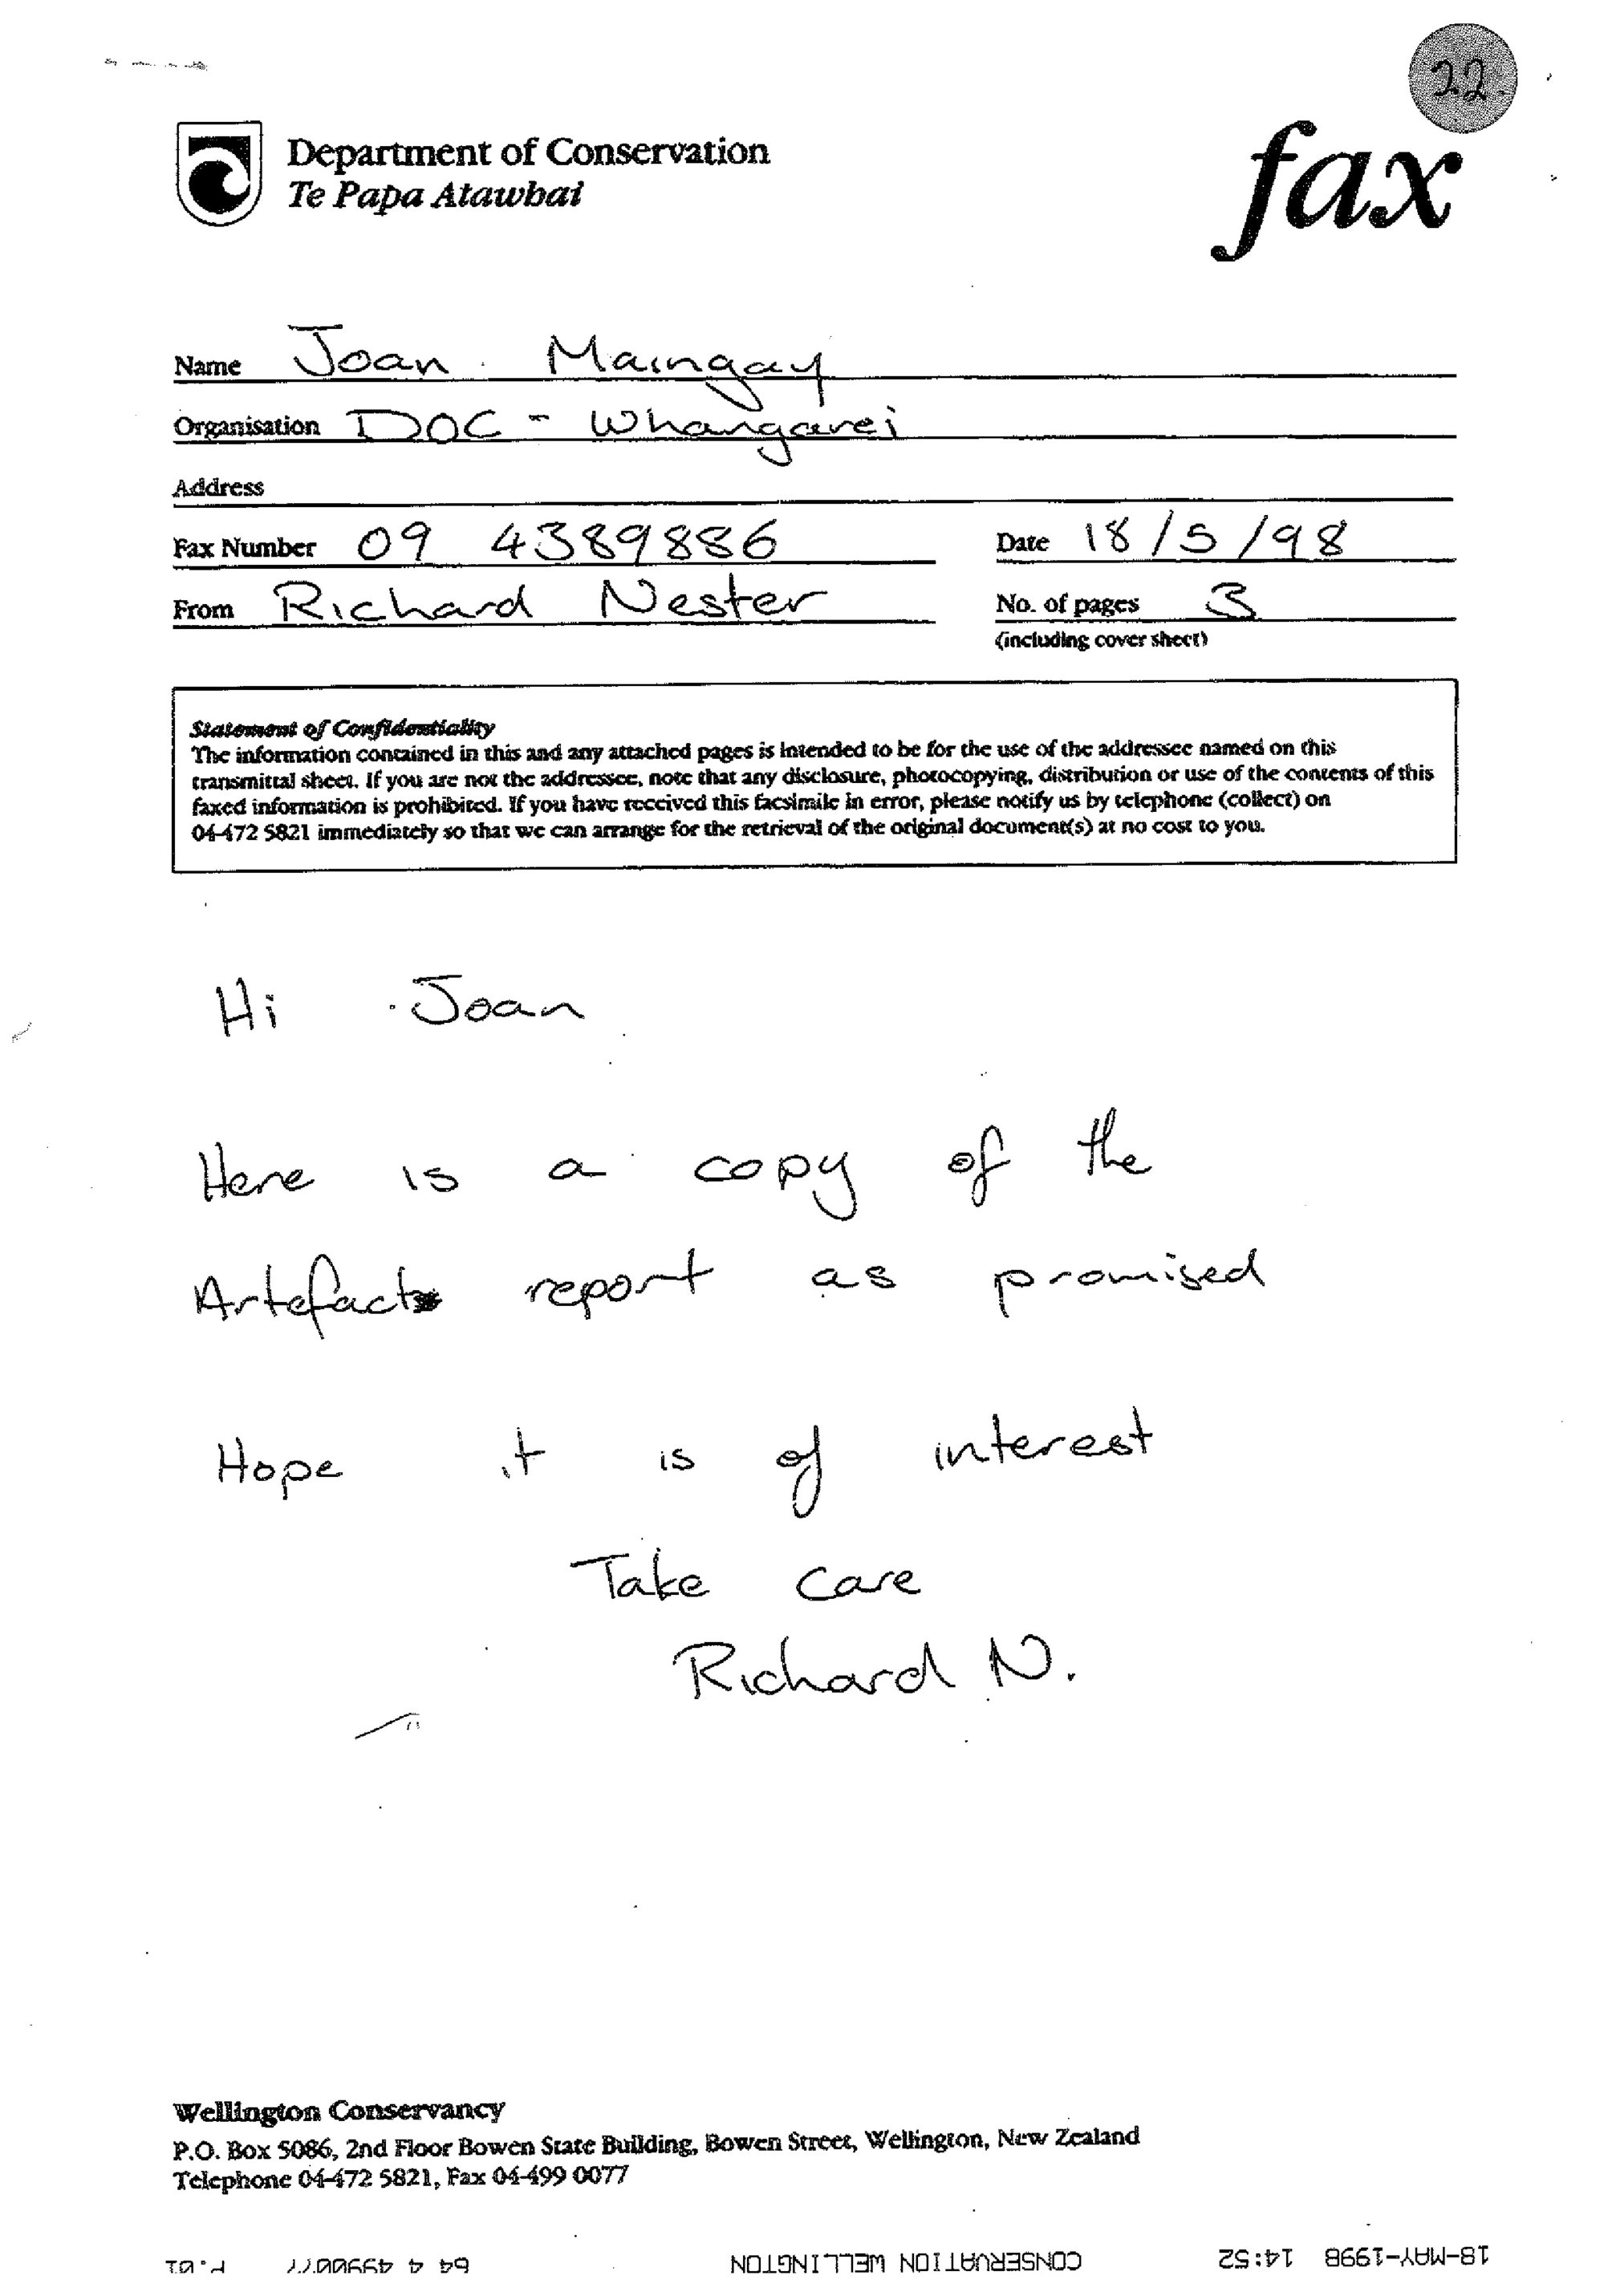 22.
Department of Conservation
Te Papa Atawhai
fax
Name Joan Maingay
Organisation DOC - Whangarei
Address
Fax Number 09 4389886 Date 18/5/98
From Richard Nester No. of pages 3
(including cover sheet)
Statement of Confidentiality
The information contained in this and any attached pages is intended to be for the use of the addressee named on this
transmittal sheet. If you are not the addressee, note that any disclosure, photocopying, distribution or use of the contents of this
faxed information is prohibited. If you have received this facsimile in error, please notify us by telephone (collect) on
04-472 5821 immediately so that we can arrange for the retrieval of the original document(s) at no cost to you.
Hi Joan
Here is a copy of the
Artefact report as promised
Hope it is of interest
Take care
Richard N.
Wellington Conservancy
P.O. Box 5086, 2nd Floor Bowen State Building, Bowen Street, Wellington, New Zealand
Telephone 04-472 5821, Fax 04-499 0077
18-MAY-1998 14:52 CONSERVATION WELLINGTON 64 4 4990077 P.01